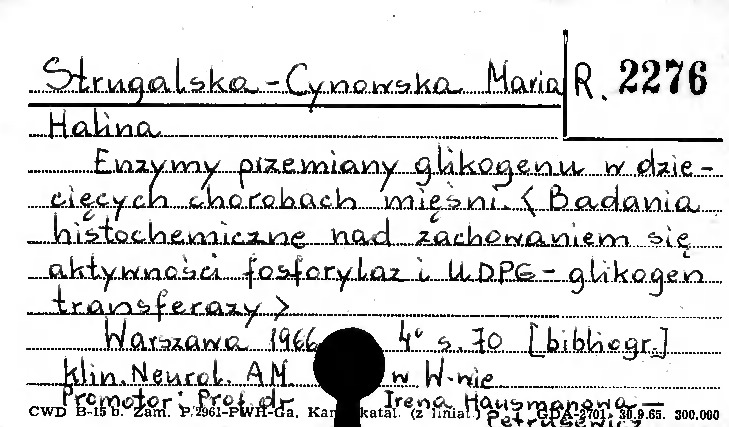 Strugalska-Cynowska Maria R. 2276
Halina
Enzymy przemiany glikogenu w dzie-
cięcych chorobach mięśni. < Badania
histochemiczne nad zachowaniem się
aktywności fosforylaz i UDPG-glikogen
transferazy >
Warszawa 1966 4° s. 70 [bibliogr.]
Klin. Neurol. AM w W-wie
Promotor: Prof. dr Irena Hausmanowa-
Petrusewicz
CWD B-15 b. Zam. P/2961-PWH-Ga. katal. (z liniat.) GDA-2701. 30.9.65. 300.000